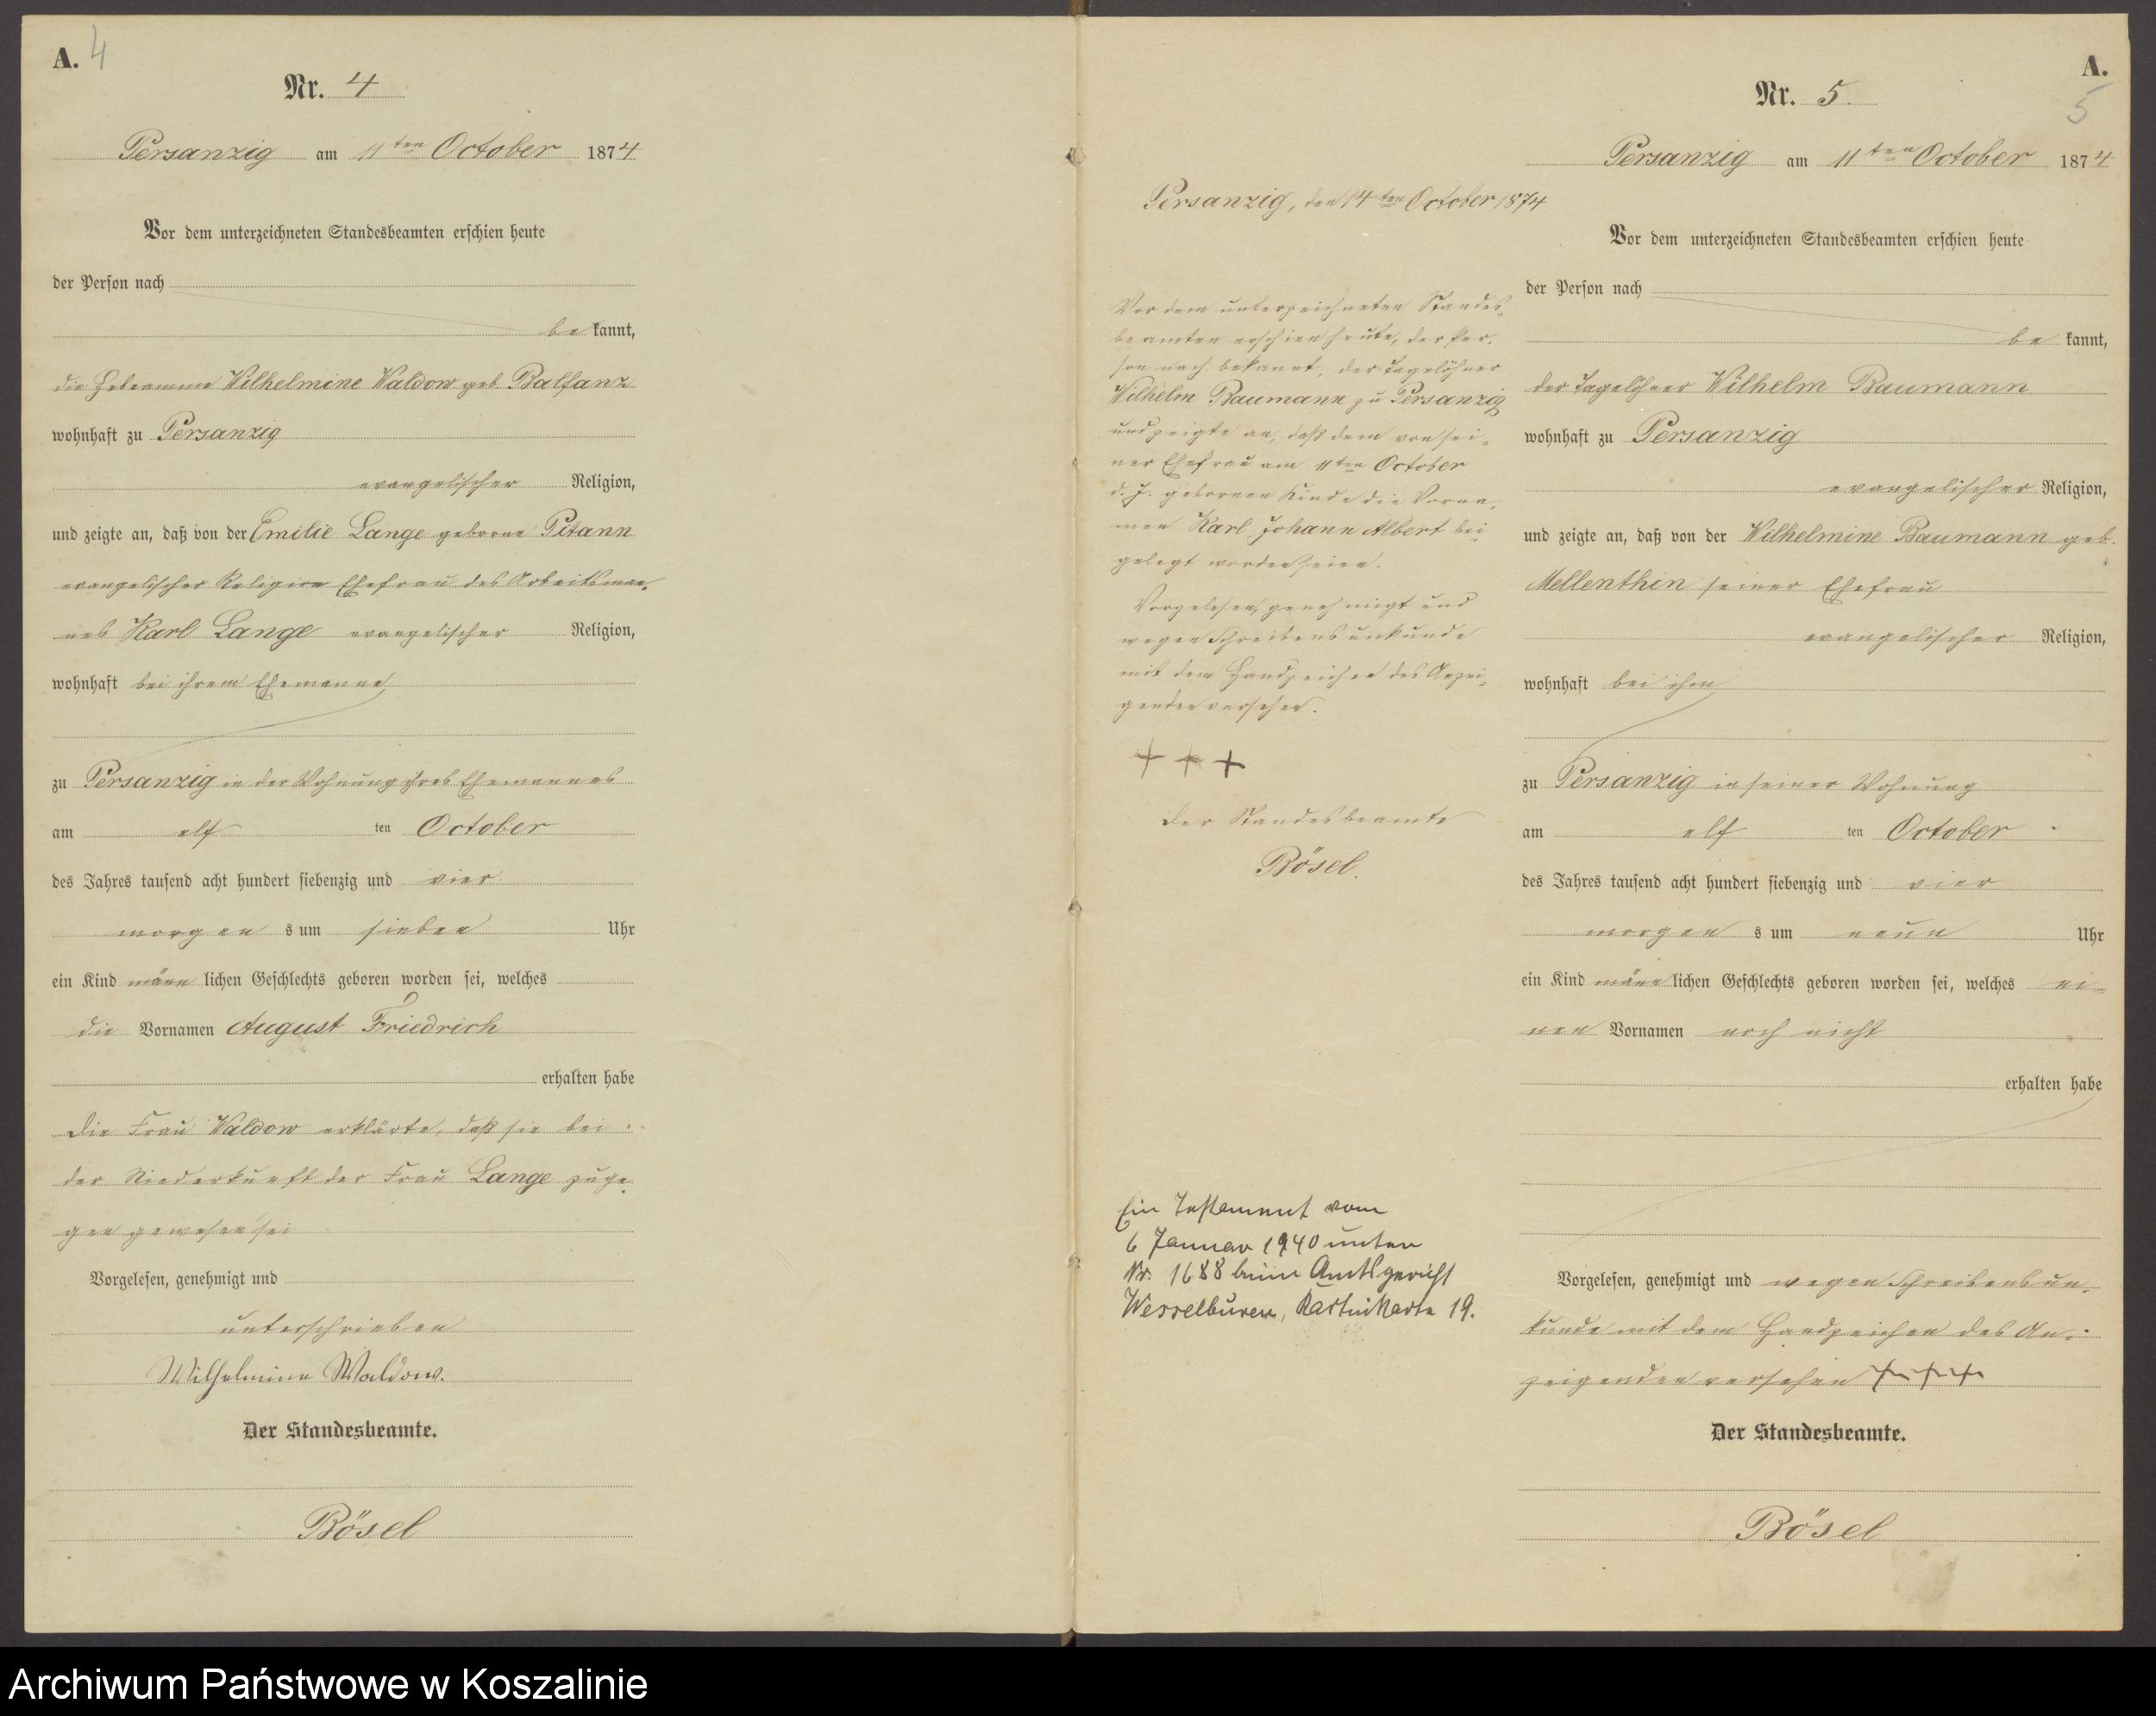 A. 4
Nr. 4
Persanzig am 11ten October 1874
Vor dem unterzeichneten Standesbeamten erschien heute
der Person nach
be kannt,
die Hebeamme Wilhelmine Waldow geb. Balfanz
wohnhaft zu Persanzig
evangelischer Religion,
und zeigte an, daß von der Emilie Lange geborne Pitann
evangelischer Religion Ehefrau des Arbeitsman-
nes Karl Lange evangelischer Religion,
wohnhaft bei ihrem Ehemanne
zu Persanzig in der Wohnung ihres Ehemannes
am elf ten October
des Jahres tausend acht hundert siebenzig und vier
morgen s um sieben Uhr
ein Kind männ lichen Geschlechts geboren worden sei, welches
die Vornamen August Friedrich
erhalten habe
Die Frau Waldow erklärte, daß sie bei
der Niederkunft der Frau Lange zuge-
gen gewesen sei
Vorgelesen, genehmigt und
unterschrieben
Wilhelmine Waldow.
Der Standesbeamte.
Bösel
Persanzig, den 14ten October 1874
Vor dem unterzeichneten Standes-
beamten erschien heute, der Per-
son nach bekannt, der Tagelöhner
Wilhelm Baumann zu Persanzig
und zeigte an, daß dem von sei-
ner Ehefrau am 11ten October
d. J. gebornen Kinde die Vorna-
men Karl Johann Albert bei
gelegt worden seien.
Vorgelesen, genehmigt und
wegen Schreibensunkunde
mit dem Handzeichen des Anzei-
genden versehen.
+ + +
Der Standesbeamte
Bösel.
Ein Testament vom
6 Januar 1940 unter
Nr. 1688 beim Amtsgericht
Wesselburen, Karteikarte 19.
A.
5
Nr. 5.
Persanzig am 11ten October 1874
Vor dem unterzeichneten Standesbeamten erschien heute
der Person nach
be kannt,
der Tagelöhner Wilhelm Baumann
wohnhaft zu Persanzig
evangelischer Religion,
und zeigte an, daß von der Wilhelmine Baumann geb.
Mellenthin seiner Ehefrau
evangelischer Religion,
wohnhaft bei ihm
zu Persanzig in seiner Wohnung
am elf ten October
des Jahres tausend acht hundert siebenzig und vier
morgen s um neun Uhr
ein Kind männ lichen Geschlechts geboren worden sei, welches ei-
nen Vornamen noch nicht
erhalten habe
Vorgelesen, genehmigt und wegen Schreibensun-
kunde mit dem Handzeichen des An-
zeigenden versehen + + +
Der Standesbeamte.
Bösel
Archiwum Państwowe w Koszalinie